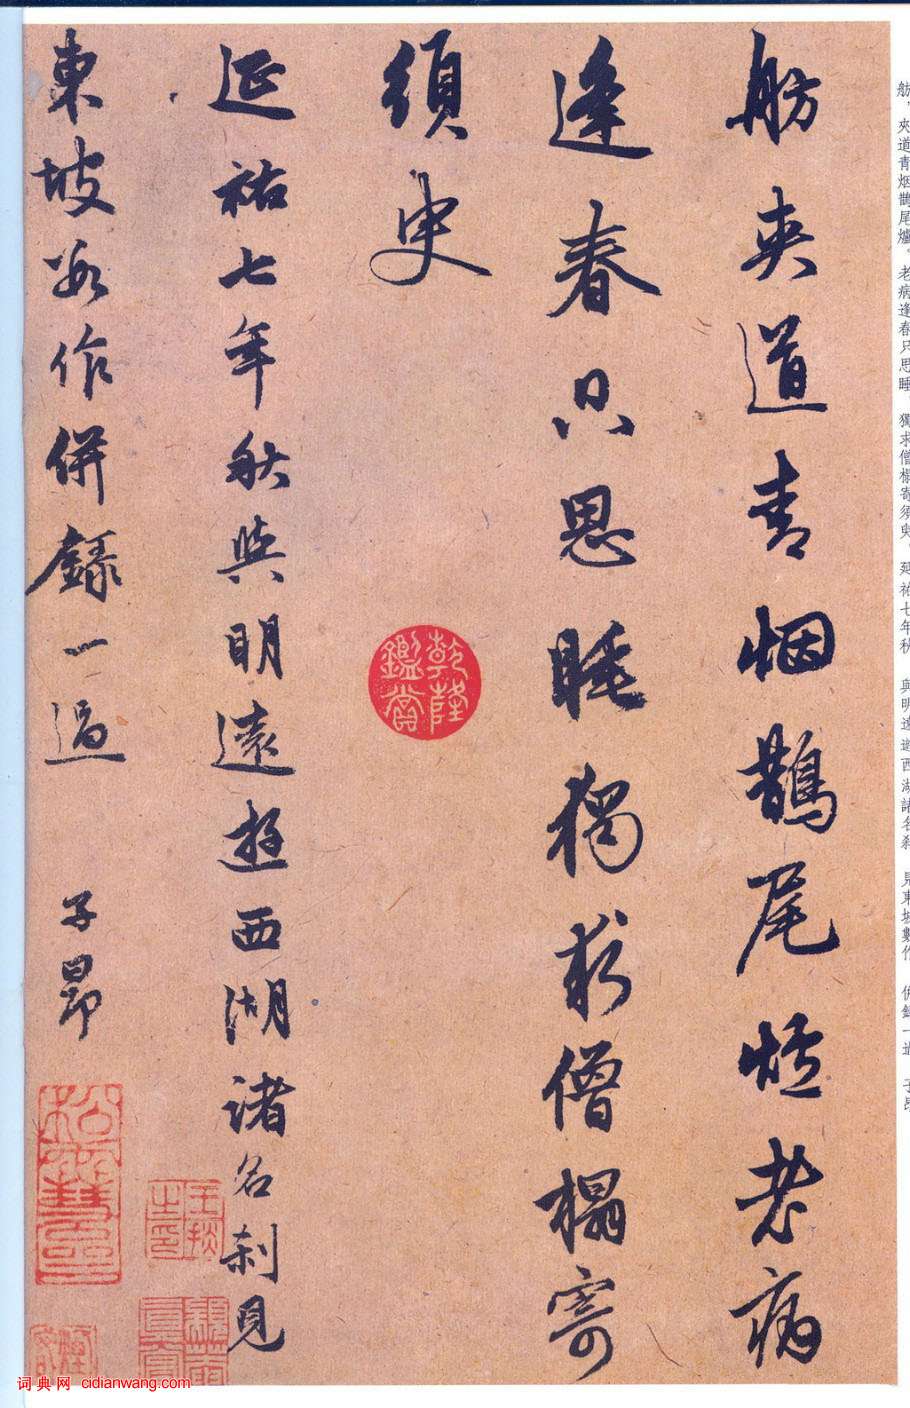 舫夾道青烟鵲尾爐老病
逢春只思睡獨求僧榻寄
須臾
延祐七年秋與明遠遊西湖諸名刹見
東坡數作併録一過 子昂
乾隆鑑賞
舫，夾道青烟鵲尾爐。老病逢春只思睡，獨求僧榻寄須臾。延祐七年秋 與明遠遊西湖諸名刹 見東坡數作 併録一過 子昂
词典网 cidianwang.com